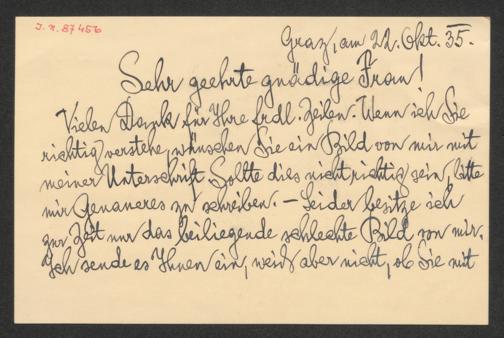 J. N. 87456
Graz, am 22. Okt. 35.
Sehr geehrte gnädige Frau!
Vielen Dank für Ihre frdl. Zeilen. Wenn ich Sie
richtig verstehe, wünschen Sie ein Bild von mir mit
meiner Unterschrift. Sollte dies nicht richtig sein, bitte
mir Genaueres zu schreiben. — Leider besitze ich
zur Zeit nur das beiliegende schlechte Bild von mir.
Ich sende es Ihnen ein, weiß aber nicht, ob Sie mit